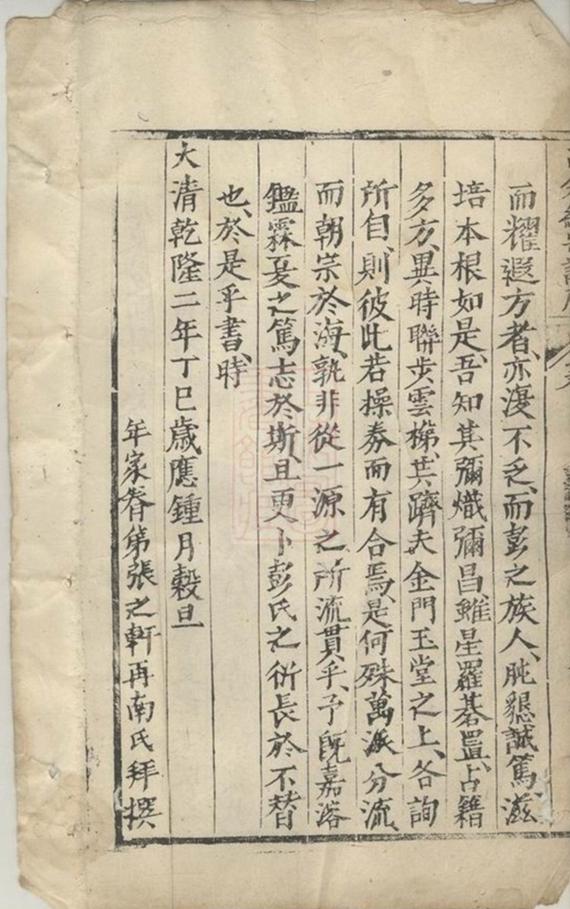 而耀遐方者、亦復不乏、而彭之族人、肫懇誠篤、滋
培本根如是、吾知其彌熾彌昌、雖星羅碁置、占籍
多方、異時聯步雲梯、共躋夫金門玉堂之上、各詢
所自、則彼此若操券而有合焉、是何殊萬派分流、
而朝宗於海、孰非從一源之所流貫乎、予既嘉溶
鑑霖夏之篤志於斯、且更卜彭氏之衍長於不替
也、於是乎書、時
大清乾隆二年丁巳歲應鍾月穀旦
年家眷弟張之軒再南氏拜撰